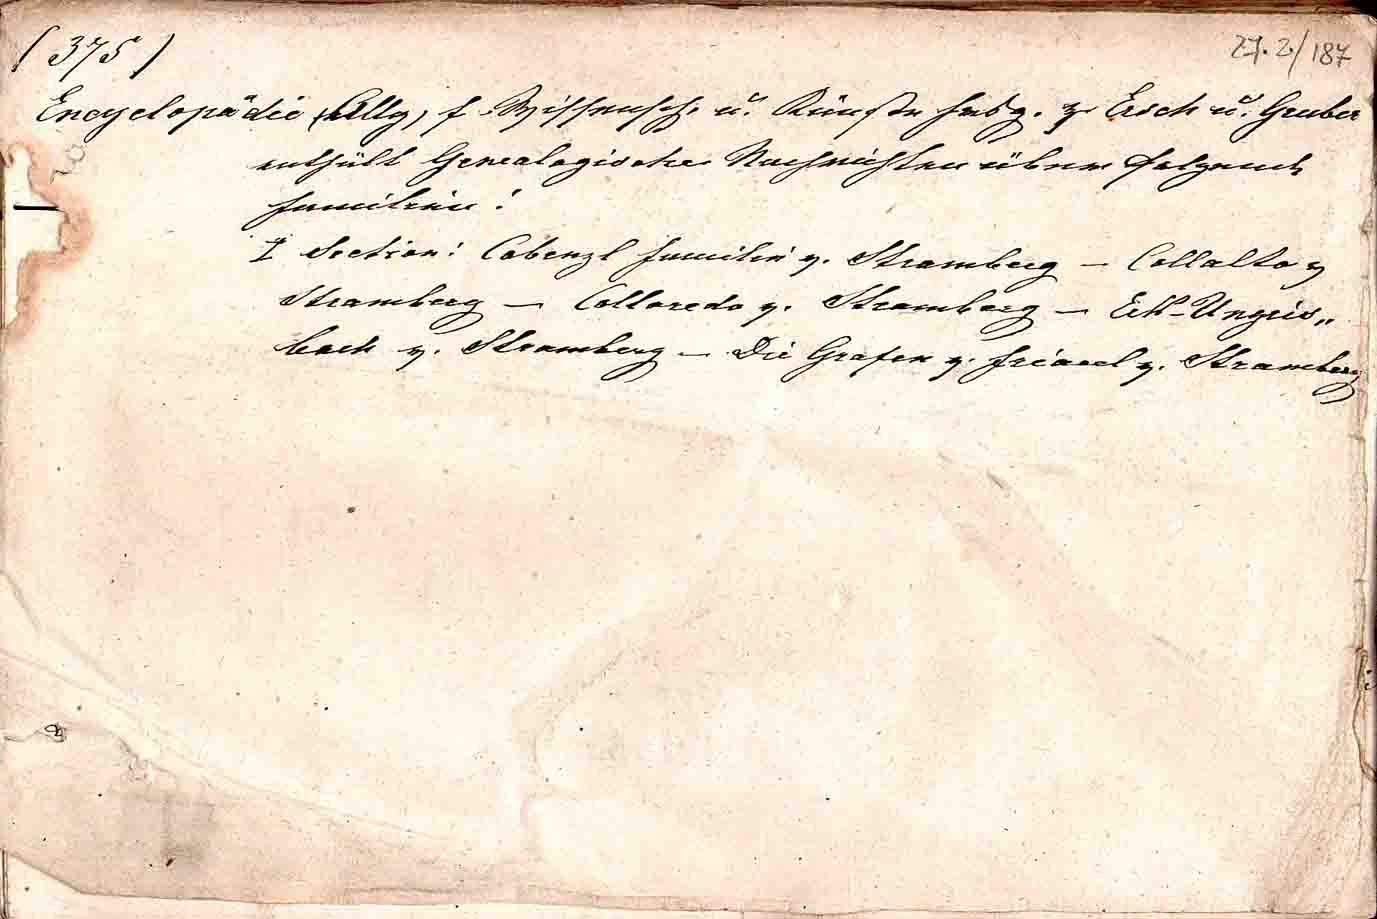 (375)
27.2/187
Encyclopädie (Allg) f. Wissensch. u. Künste hrsg. v. Ersch u. Gruber
enthält Genealogische Nachrichten über folgende
Familien:
I Section: Cobenzl Familie v. Stramberg – Collalto v
Stramberg – Colloredo v. Stramberg – Eck-Ungris„
bach v. Stramberg – Die Grafen v. Friaul v. Stramberg